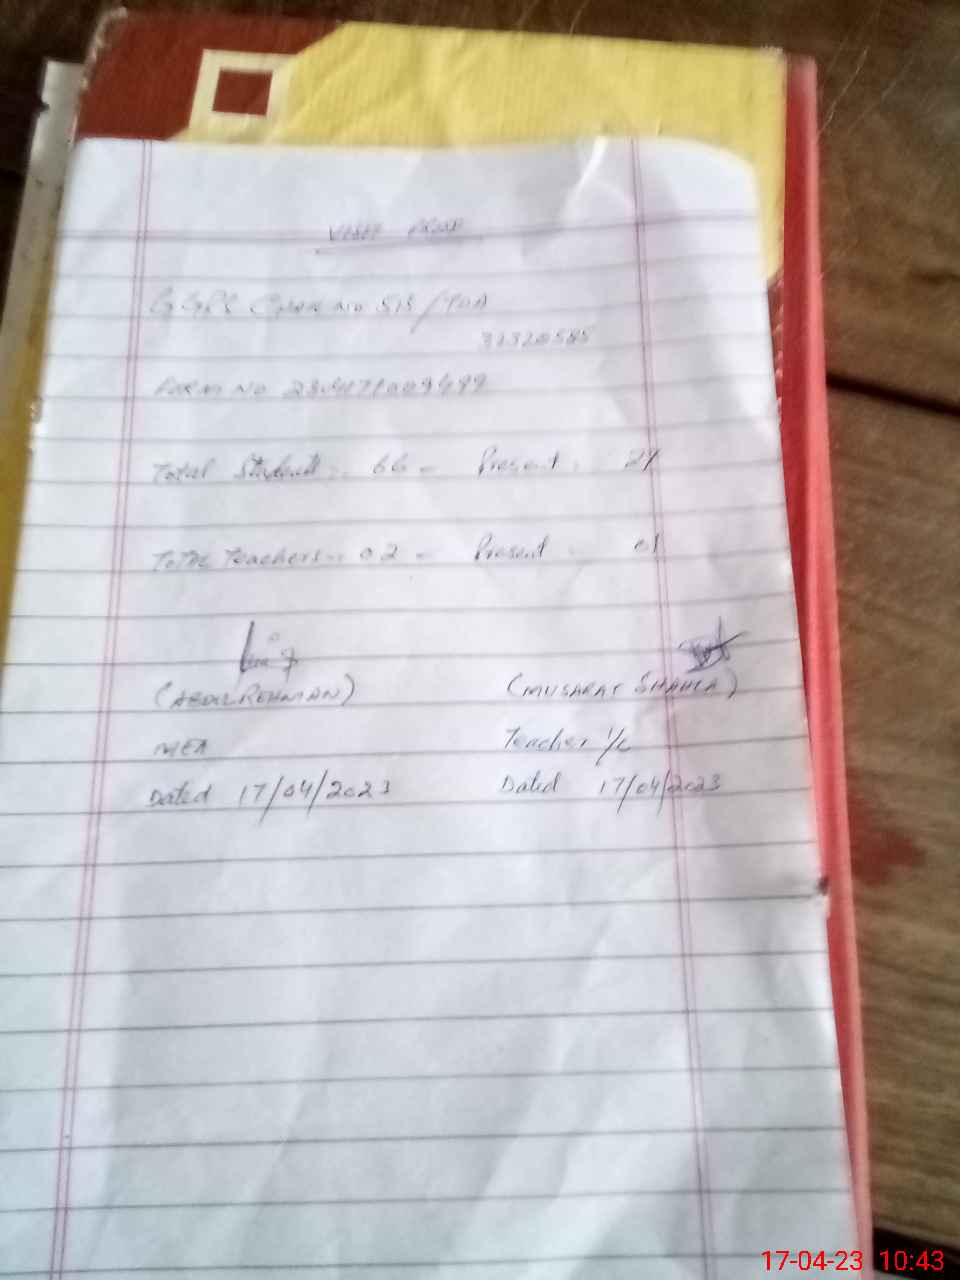 VISIT PROOF
GGPS Chak No 515/TDA
32320585
FORM NO
Total Student:- 66 - Present :
Total Teachers:- 02 - Present - 01
(ABDUL REHMAN) (MUSARAT SHAHLA)
MEA Teacher I/C
Dated 17/04/2023 Dated 17/04/2023
17-04-23 10:43